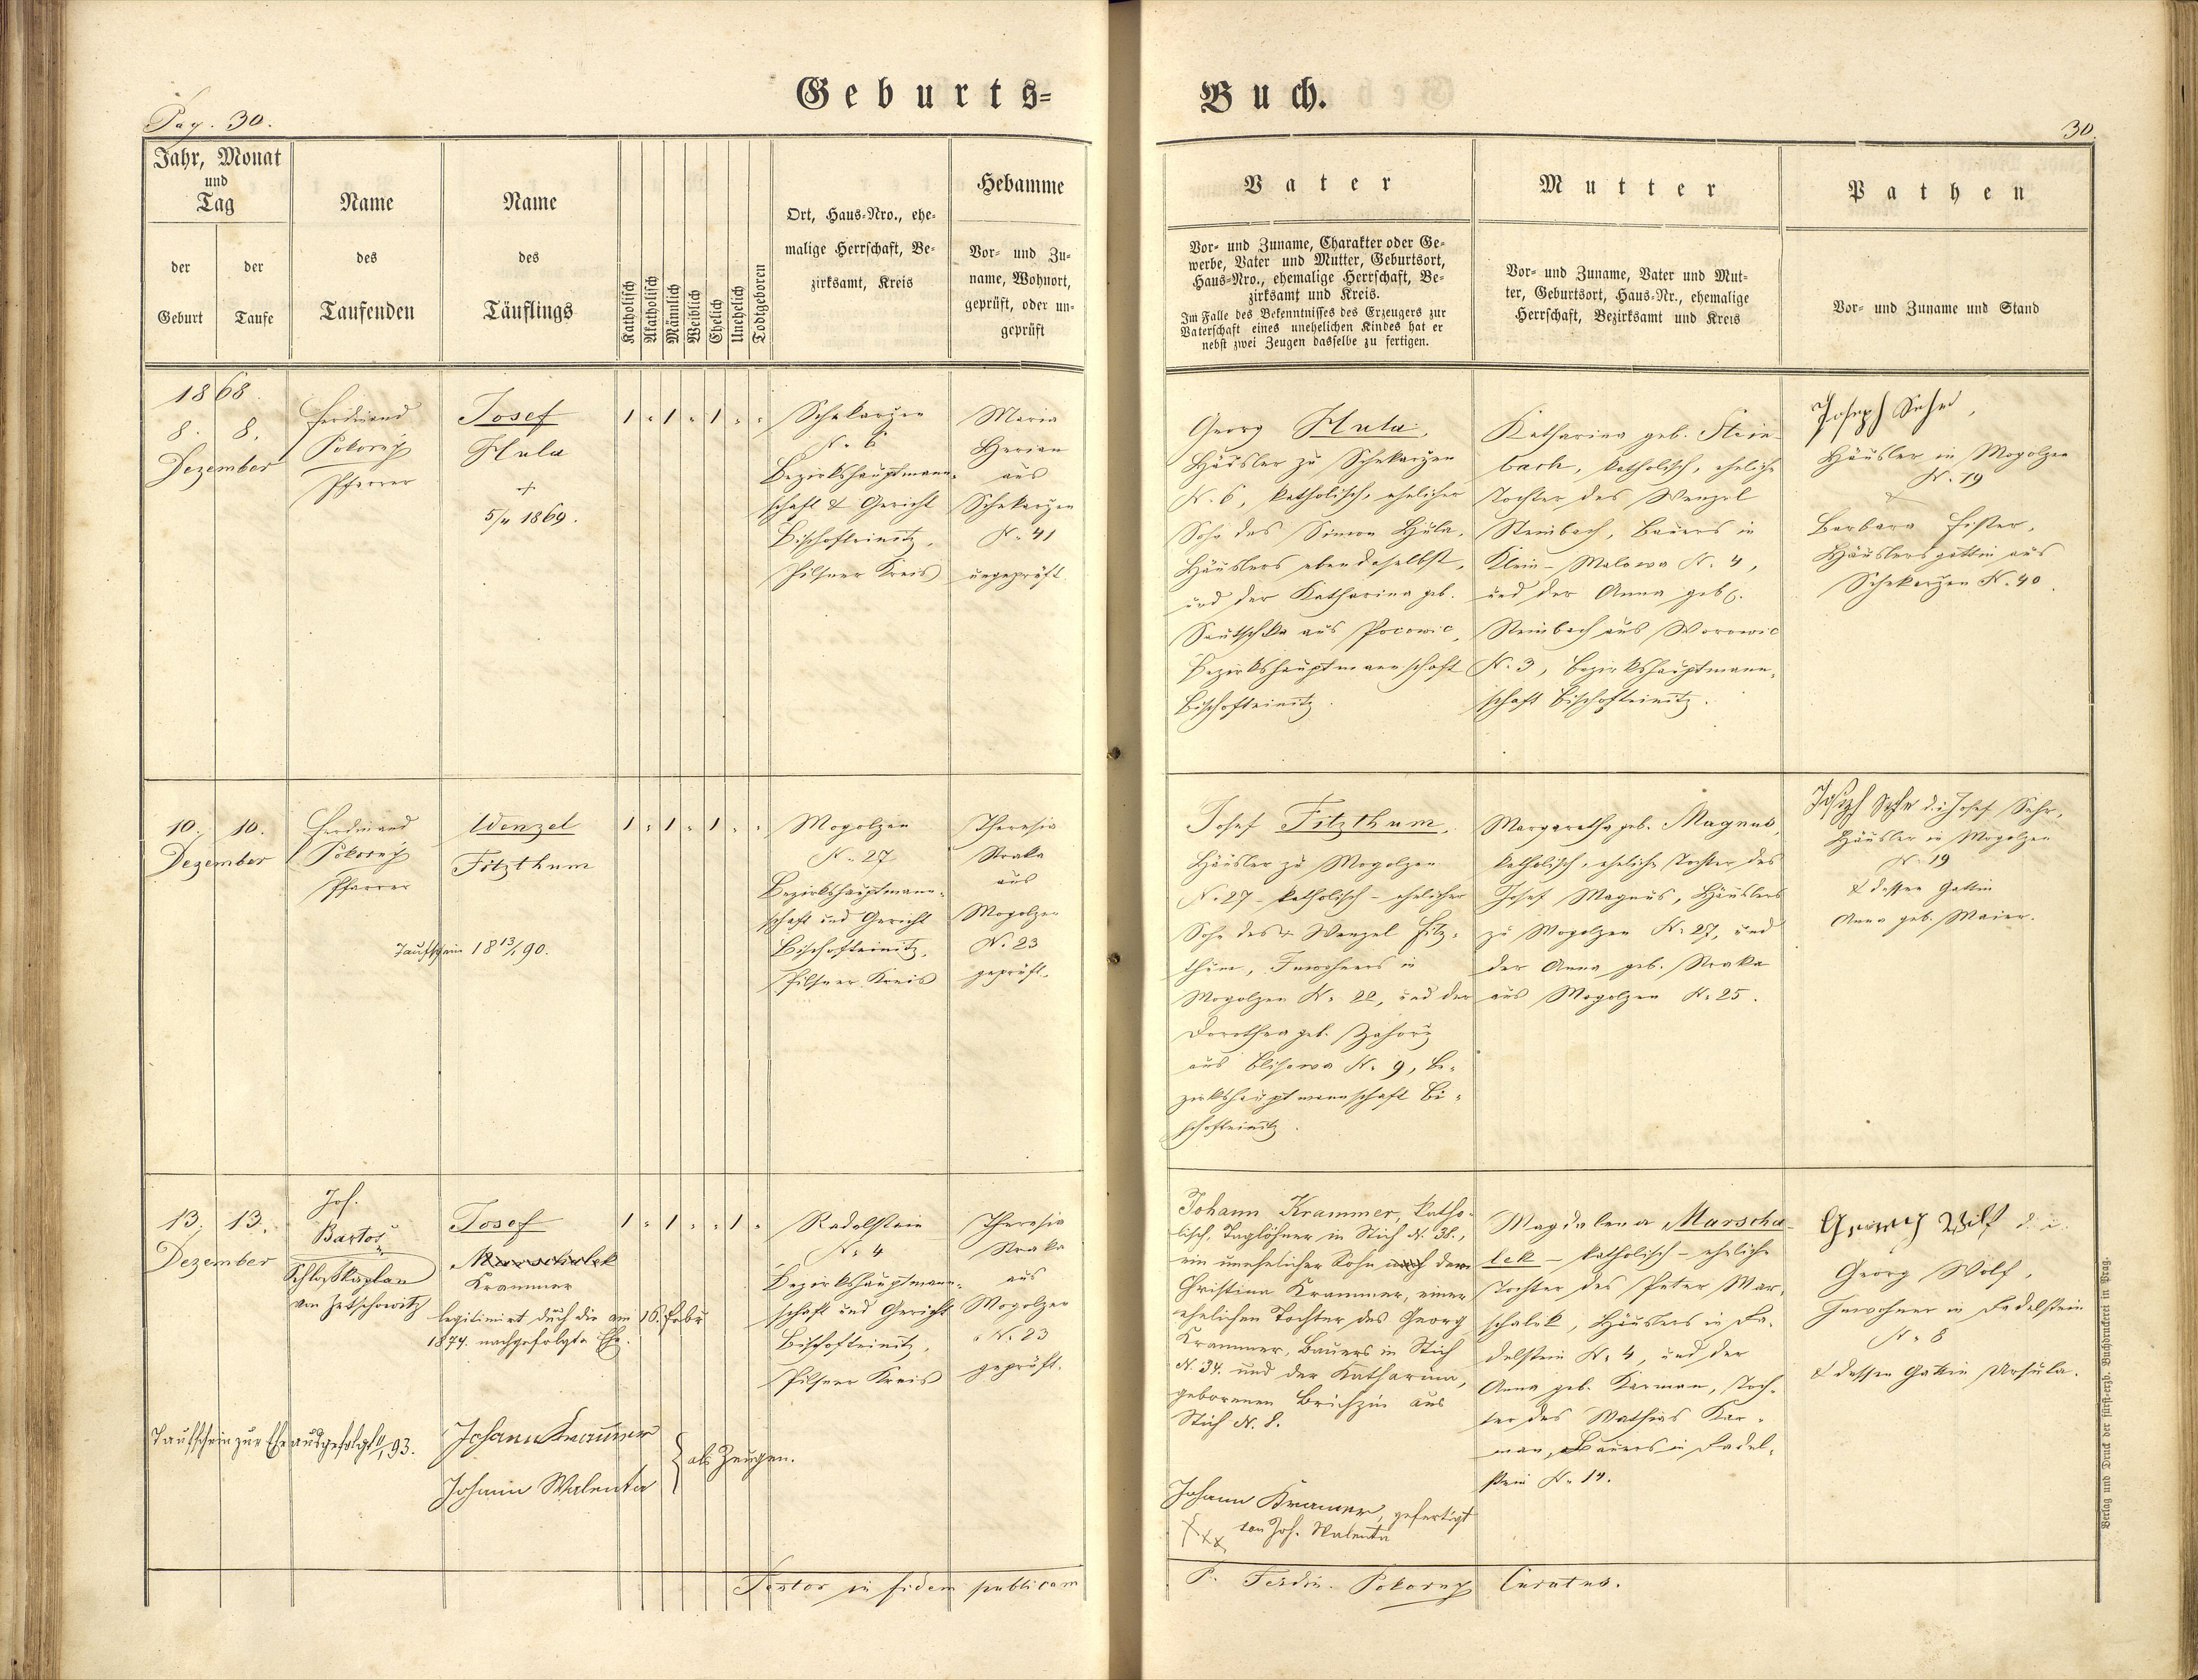 Pag. 30.
Geburts-
Buch.
30
Jahr, Monat
und
Tag
der
Geburt
der
Taufe
Name
des
Taufenden
Name
des
Täuflings
Katholisch
Akatholisch
Männlich
Weiblich
Ehelich
Unehelich
Todtgeboren
Ort, Haus-Nro., ehe-
malige Herrschaft, Be-
zirksamt, Kreis
Hebamme
Vor- und Zu-
name, Wohnort,
geprüft, oder un-
geprüft
Vater
Vor- und Zuname, Charakter oder Ge-
werbe, Vater und Mutter, Geburtsort,
Haus-Nro., ehemalige Herrschaft, Be-
zirksamt und Kreis.
Im Falle des Bekenntnisses des Erzeugers zur
Vaterschaft eines unehelichen Kindes hat er
nebst zwei Zeugen dasselbe zu fertigen.
Mutter
Vor- und Zuname, Vater und Mut-
ter, Geburtsort, Haus-Nr., ehemalige
Herrschaft, Bezirksamt und Kreis
Pathen
Vor- und Zuname und Stand
1868
8. 8.
Dezember
Ferdinand
Pokorný
Pfarrer
Josef
Hula
+
5/4 1869.
1 " 1 " 1 " "
Schekarzen
N. 6
Bezirkshauptmann-
schaft & Gericht
Bischofteinitz,
Pilsner Kreis
Maria
Herian
aus
Schekarzen
N. 41
ungeprüft.
Georg Hula,
Häusler zu Schekarzen
N. 6, katholisch, ehelicher
Sohn des Simon Hula,
Häuslers ebendaselbst,
und der Katharina geb.
aus Pocowic,
Bezirkshauptmannschaft
Bischofteinitz.
Katharina geb. Stein-
bach, katholisch, eheliche
Tochter des Wenzel
Steinbach, Bauers in
Klein-Malowa N. 4,
und der Anna geb.
Steinbach aus Worowic
N. 3, Bezirkshauptmann-
schaft Bischofteinitz.
Joseph Sehr,
Häusler in Mogolzen
N. 19
Barbara Fister,
Häuslersgattin aus
Schekarzen N. 40.
10. 10.
Dezember
Ferdinand
Pokorný
Pfarrer
Wenzel
Fitzthum
Taufschein 18 13/1 90.
1 " 1 " 1 " "
Mogolzen
N. 27
Bezirkshauptmann-
schaft und Gericht
Bischofteinitz,
Pilsner Kreis
Theresia
Straka
aus
Mogolzen
N. 23
geprüft.
Josef Fitzthum,
Häusler zu Mogolzen
N. 27 - katholisch - ehelicher
Sohn des Wenzel Fitz-
thum, Inwohners in
Mogolzen N. 22, und der
Dorothea geb.
aus Blisowa N. 9, Be-
zirkshauptmannschaft Bi-
schofteinitz.
Margaretha geb. Magnus,
katholisch, eheliche Tochter des
Josef Magnus, Häuslers
zu Mogolzen N. 27, und
der Anna geb. Straka
aus Mogolzen N. 25.
Joseph Sehr d. i. Josef Sehr,
Häusler in Mogolzen
N. 19
& dessen Gattin
Anna geb. Maier.
13. 13.
Dezember
Jos.
Bartoš
Schlosskaplan
von Zetschowitz
Josef
Marschalek
Krammer
legitimirt duch die am 16. Febr
1874. nachgefolgte Ehe.
1 " 1 " " 1 "
Radelstein
N. 4
Bezirkshauptmann-
schaft und Gericht
Bischofteinitz,
Pilsner Kreis
Theresia
Straka
aus
Mogolzen
N. 23
geprüft.
Johann Krammer, katho-
lisch, Taglöhner in Stich N. 38.,
ein unehelicher Sohn der
Christina Krammer, einer
ehelichen Tochter des Georg
Krammer, Bauers in Stich
N. 34. und der Katharina,
geborenen Brichzin aus
Stich N. 8.
Johann Kramer, gefertigt
von Joh. Walenta
XXX
Magdalena Marscha-
lek - katholisch - eheliche
Tochter des Peter Mar-
schalek, Häuslers in Ra-
delstein N. 4, und der
Anna geb. Karman, Toch-
ter des Mathias Kar-
man, Bauers in Radel-
stein N. 14.
Georg Wolf d. i.
Georg Wolf,
Inwohner in Radelstein
N. 8
& dessen Gattin Ursula.
Taufschein zur Ehe ausgefolgt /93.
Johann Krammer
Johann Walenta
als Zeugen.
Testor in fidem publicam
P. Ferdin. Pokorný Curatus.
Verlag und Druck der fürst-erzb. Buchdruckerei in Prag.